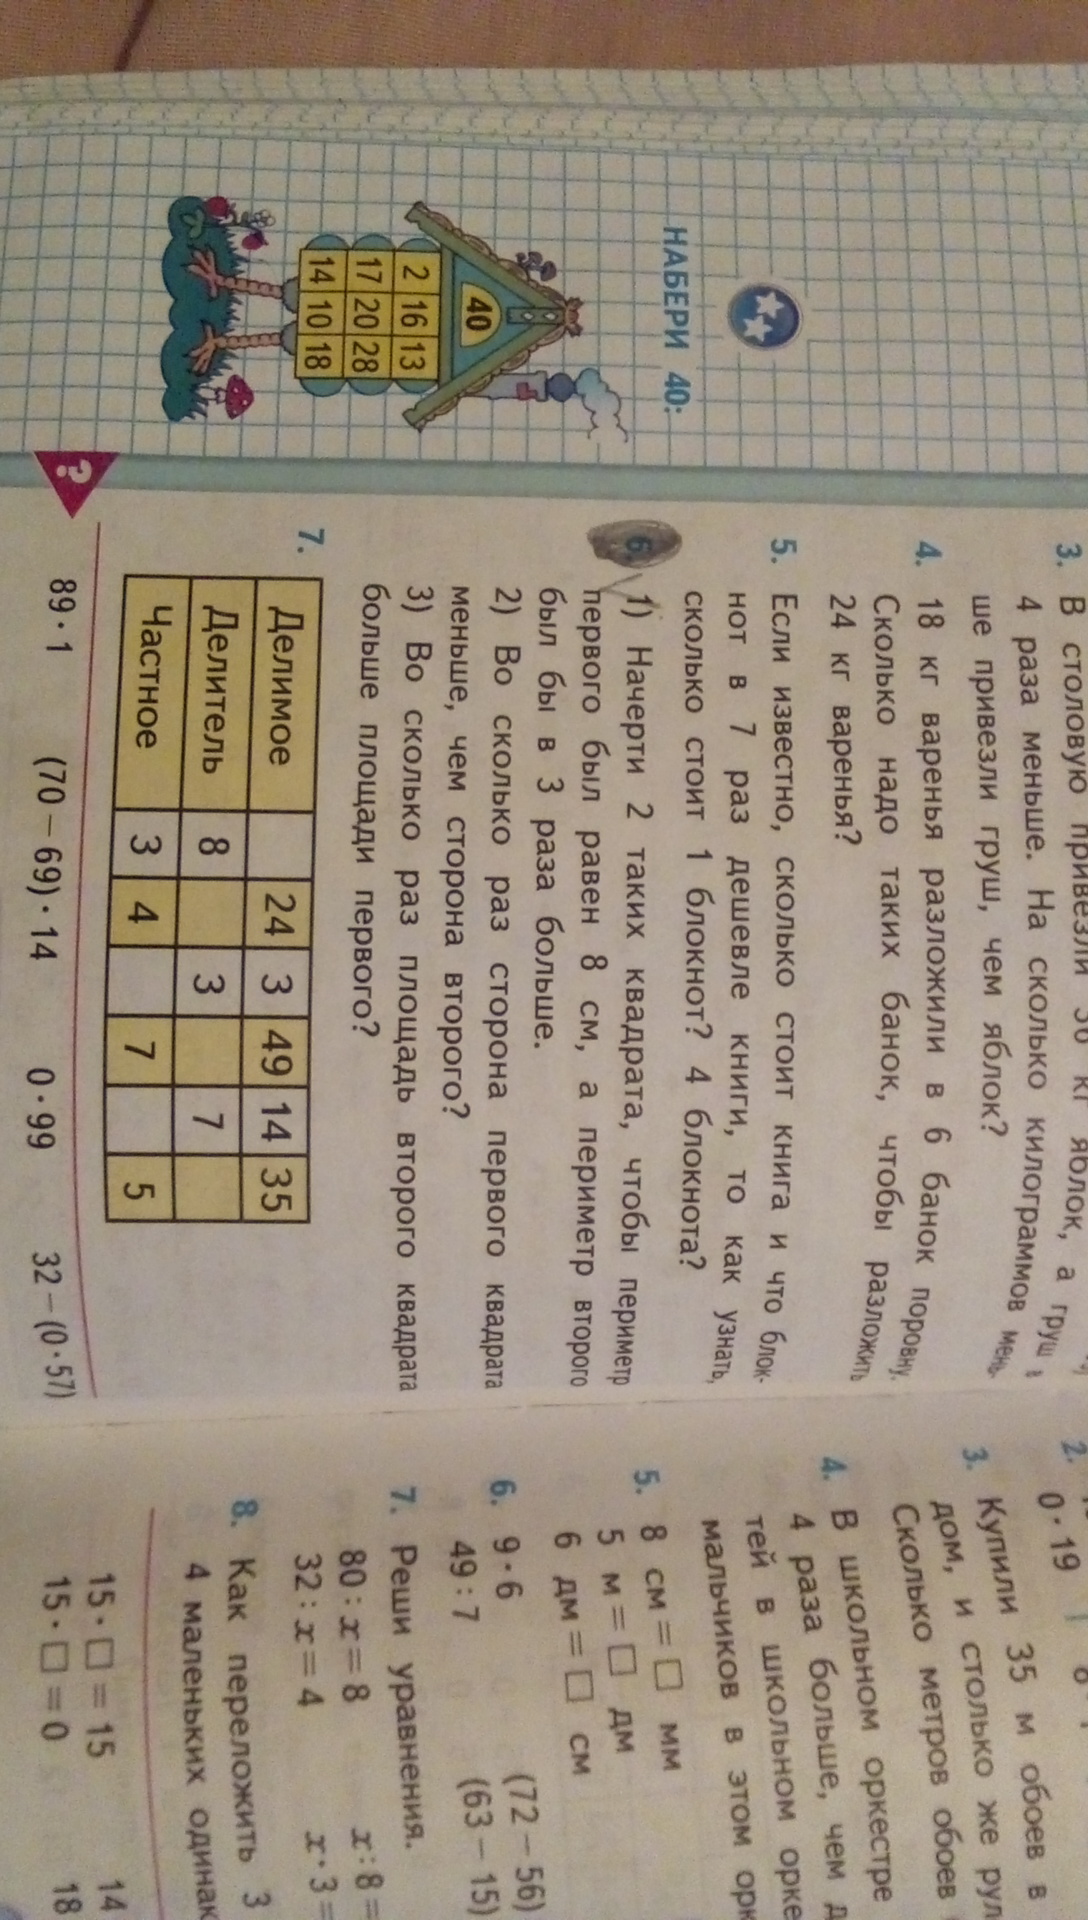 3. В столовую привезли 36 кг яблок, а груш в
4 раза меньше. На сколько килограммов мень-
ше привезли груш, чем яблок?
4. 18 кг варенья разложили в 6 банок поровну.
Сколько надо таких банок, чтобы разложить
24 кг варенья?
5. Если известно, сколько стоит книга и что блок-
нот в 7 раз дешевле книги, то как узнать,
сколько стоит 1 блокнот? 4 блокнота?
6. 1) Начерти 2 таких квадрата, чтобы периметр
первого был равен 8 см, а периметр второго
был бы в 3 раза больше.
2) Во сколько раз сторона первого квадрата
меньше, чем сторона второго?
3) Во сколько раз площадь второго квадрата
больше площади первого?
7.
Делимое 24 3 49 14 35
Делитель 8 3 7
Частное 3 4 7 5
?
89 · 1 (70 – 69) · 14 0 · 99 32 – (0 · 57)
НАБЕРИ 40:
40
2 16 13
17 20 28
14 10 18
2.
0 · 19
3. Купили 35 м обоев в
дом, и столько же рул
Сколько метров обоев
4. В школьном оркестре
4 раза больше, чем д
тей в школьном орке
мальчиков в этом орк
5. 8 см = □ мм
5 м = □ дм
6 дм = □ см
6. 9 · 6 (72 – 56)
49 : 7 (63 – 15)
7. Реши уравнения.
80 : x = 8 x : 8 =
32 : x = 4 x · 3 =
8. Как переложить 3
4 маленьких одинак
15 · □ = 15 14
15 · □ = 0 18